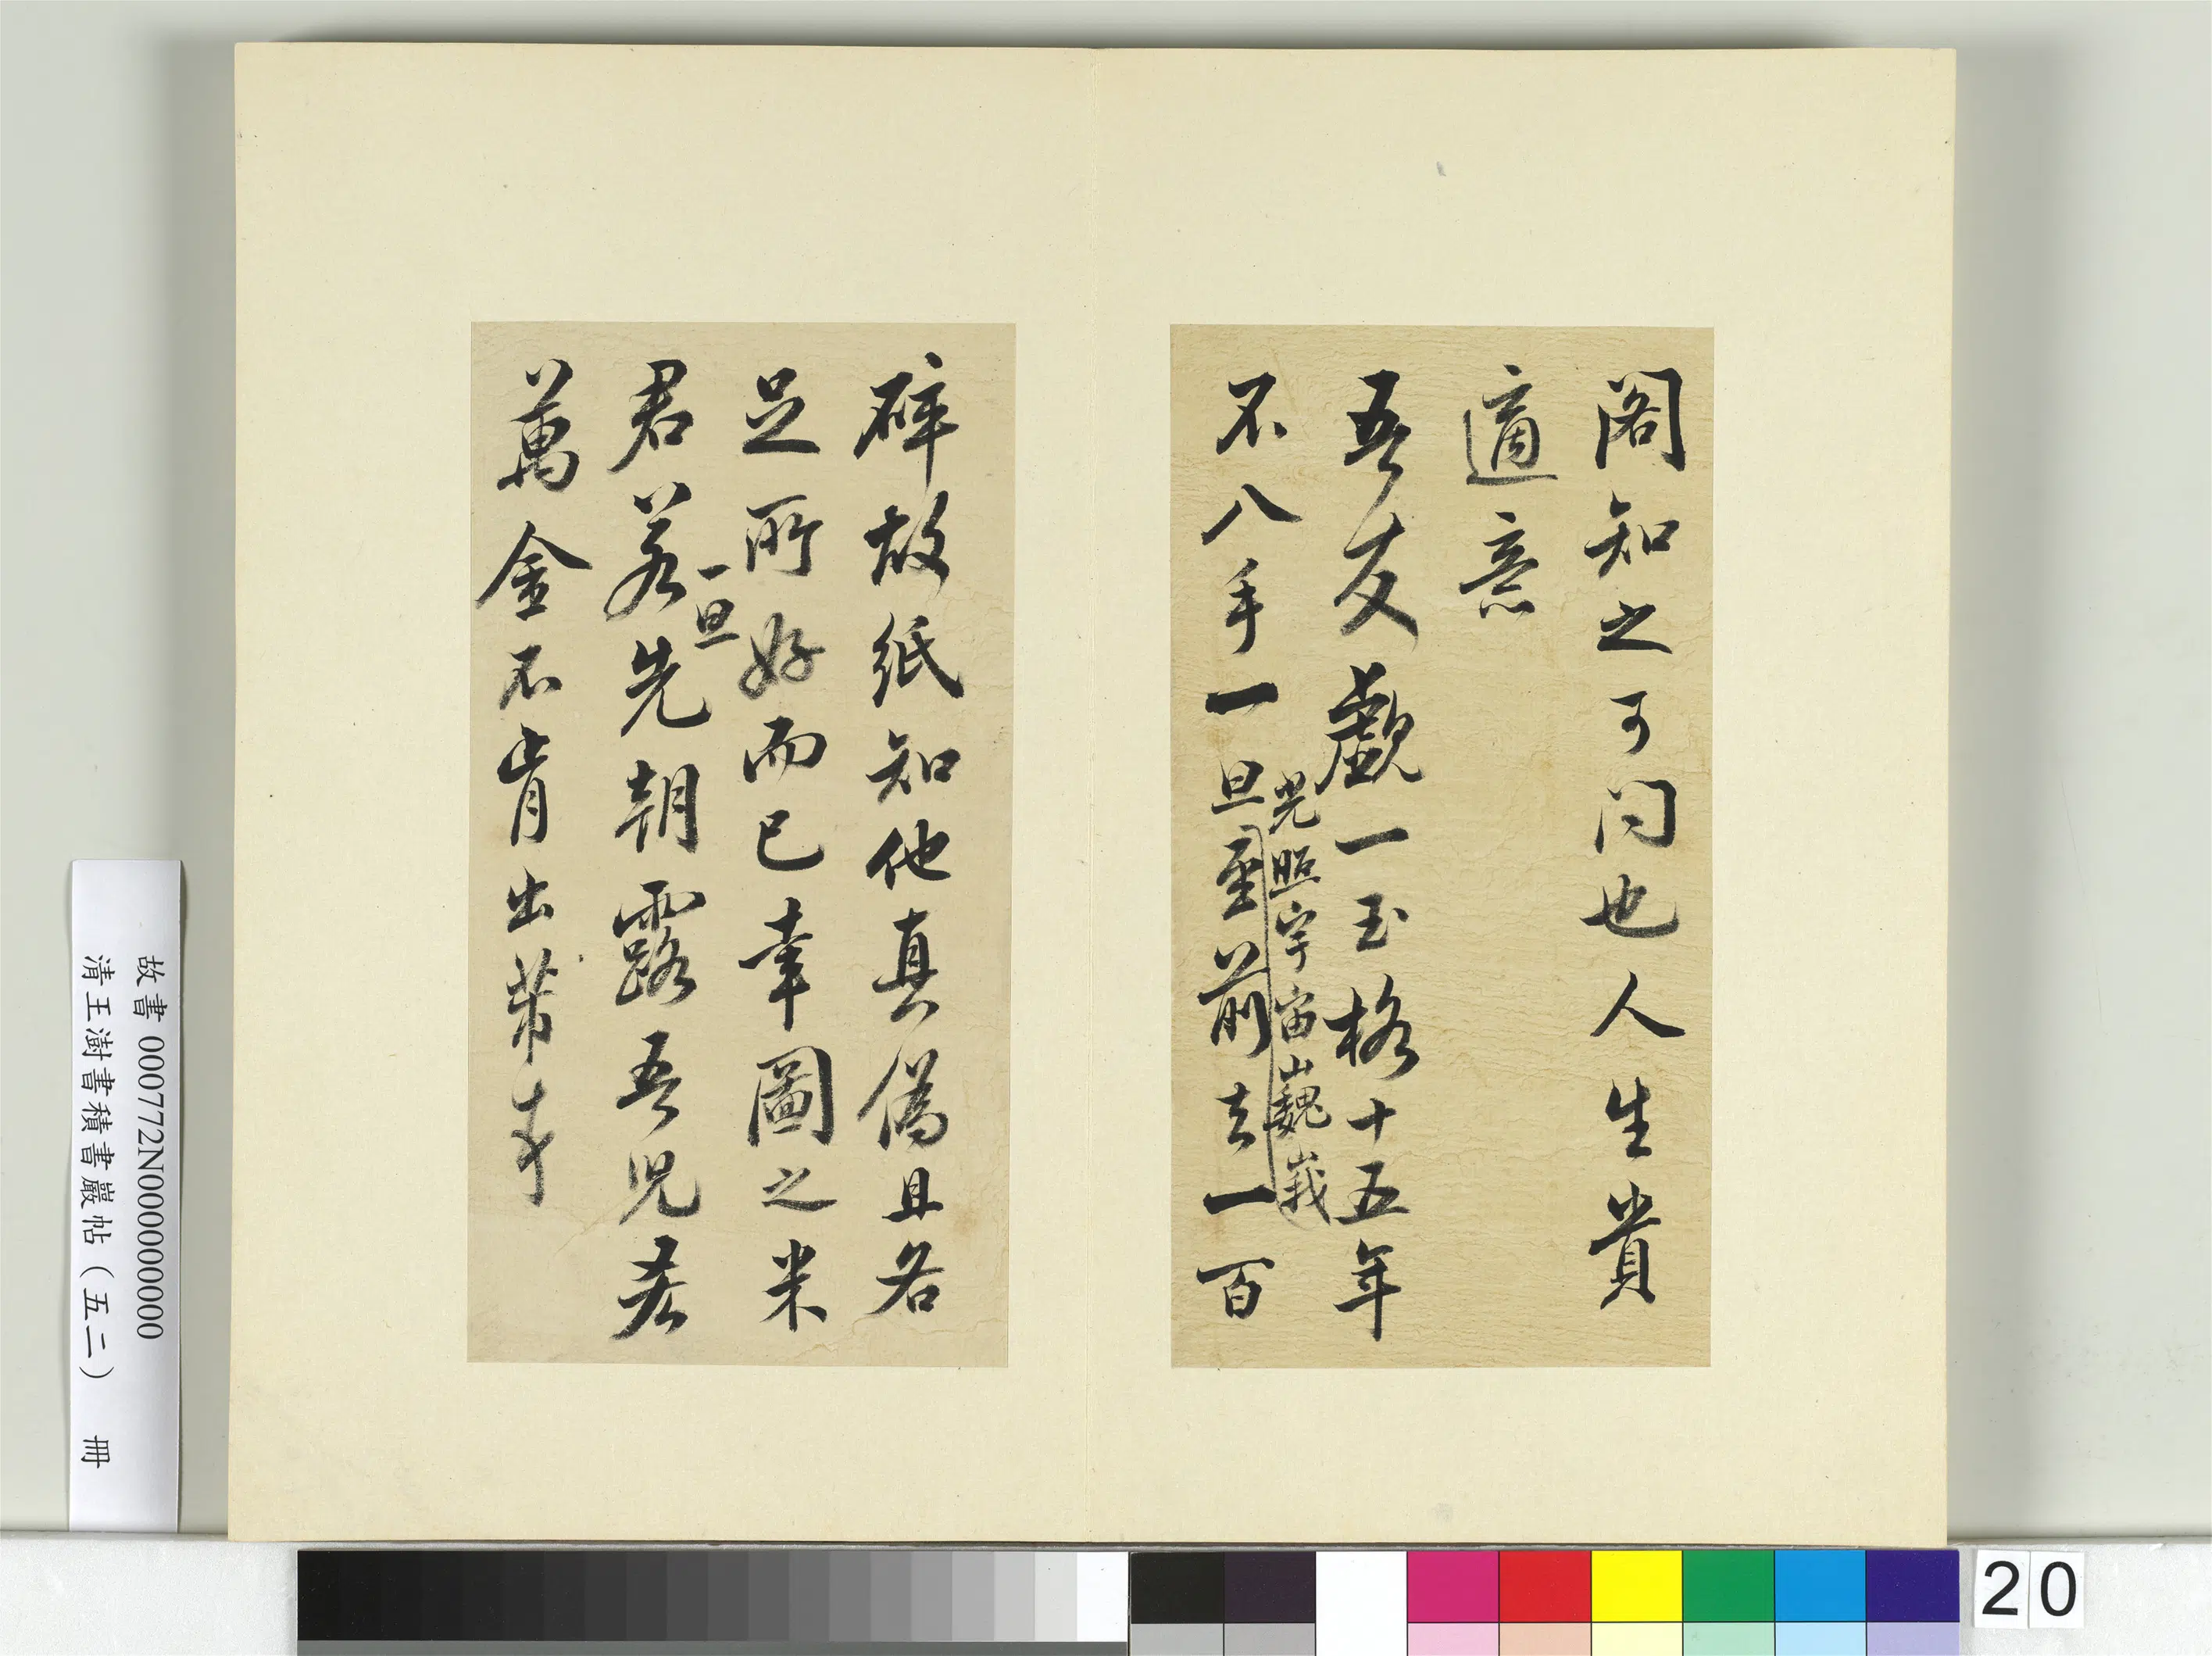 閣知之可問也人生貴
適意
吾友覷一玉格十五年
不入手一旦光照宇宙巍峩
至前去一百
碎故紙知他真偽且各
足所好而已幸圖之米
君若一旦先朝露吾兒吝
萬金不肯出芾
故書 000772N000000000
清王澍書積書巖帖(五二) 冊
20